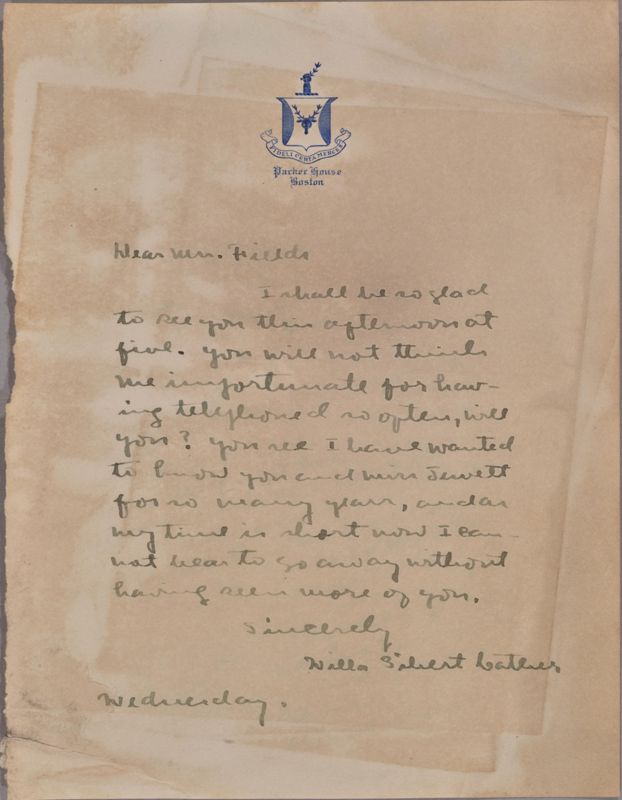 FIDELI CERTA MERCES
Parker House
Boston
Dear Mrs. Fields
I shall be so glad
to see you this afternoon at
five. You will not think
me importunate for hav-
ing telephoned so often, will
you? You see I have wanted
to know you and Miss Jewett
for so many years, and as
my time is short now I can-
not bear to go away without
having seen more of you.
Sincerely
Willa Sibert Cather
Wednesday.